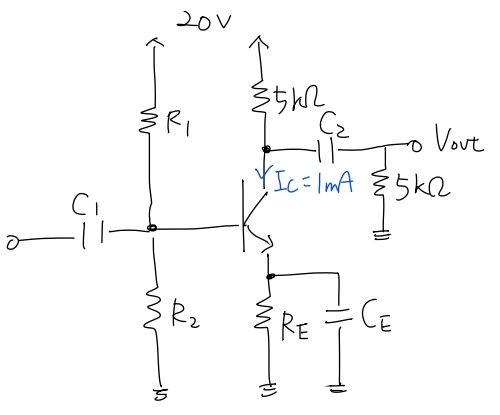 20V
R1
5kΩ
C2
Vout
Ic=1mA
5kΩ
C1
R2
RE
CE